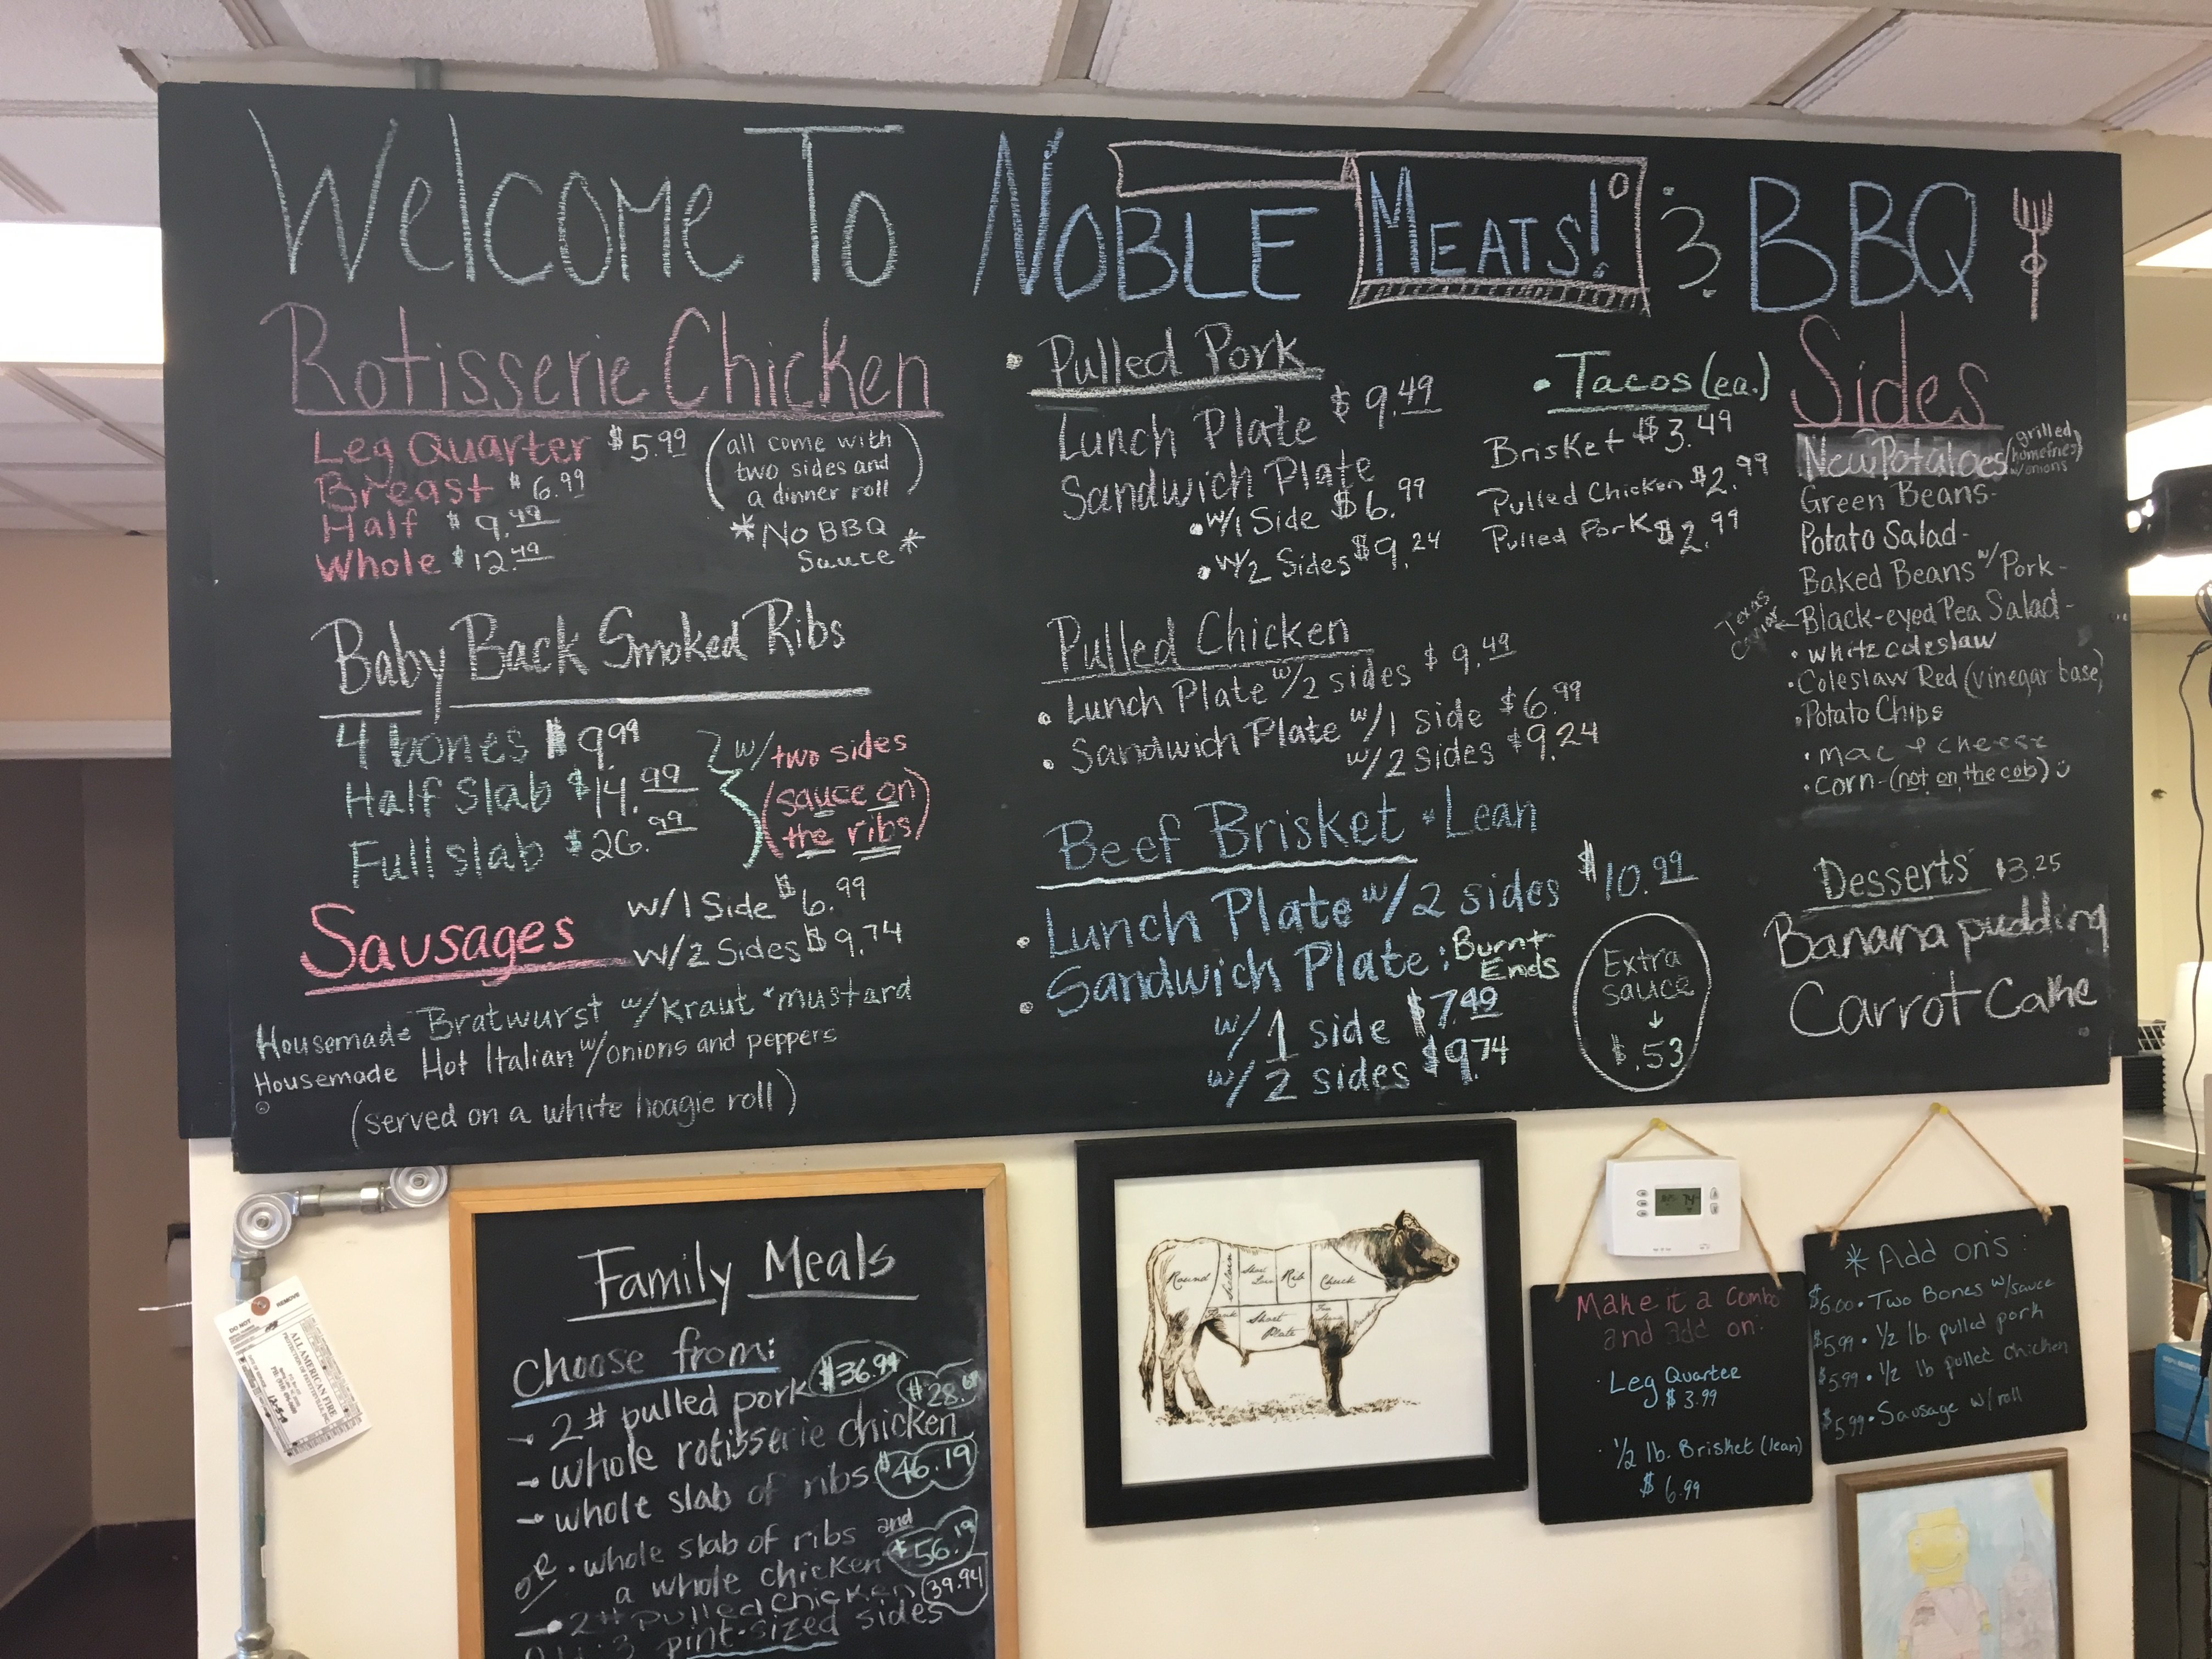 Welcome To Noble Meats! & BBQ
Rotisserie Chicken
Leg Quarter $5.99
Breast $6.99
Half $9.49
Whole $12.49
(all come with
two sides and
a dinner roll)
*No BBQ
Sauce*
Baby Back Smoked Ribs
4 bones $9.99
Half Slab $14.99
Full slab $26.99
w/ two sides
(sauce on
the ribs)
Sausages
w/1 Side $6.99
w/2 Sides $9.74
Housemade Bratwurst w/kraut + mustard
Housemade Hot Italian w/onions and peppers
(served on a white hoagie roll)
• Pulled Pork
Lunch Plate $9.49
Sandwich Plate
• w/1 Side $6.99
• w/2 Sides $9.24
• Tacos (ea.)
Brisket $3.49
Pulled Chicken $2.99
Pulled Pork $2.99
Pulled Chicken
• Lunch Plate w/2 sides $9.49
• Sandwich Plate w/1 side $6.99
w/2 sides $9.24
Beef Brisket • Lean
• Lunch Plate w/2 sides $10.99
• Sandwich Plate: Burnt
Ends
w/1 side $7.49
w/2 sides $9.74
Extra
sauce
↓
$.53
Sides
New Potatoes (grilled
homefries
w/onions)
Green Beans-
Potato Salad-
Baked Beans w/Pork-
Texas
Caviar
Black-eyed Pea Salad-
• white coleslaw
• Coleslaw Red (vinegar base)
• Potato Chips
• mac + cheese
• corn-(not on the cob)
Desserts $3.25
Banana pudding
Carrot Cake
Family Meals
choose from:
2# pulled pork $36.94
whole rotisserie chicken
whole slab of ribs $46.19
OR • whole slab of ribs and
a whole chicken $56.19
2# pulled chicken 39.94
3 pint-sized sides
Round
Sirloin
Short
Loin
Rib
Chuck
Short
Plate
74
Make it a combo
and add on:
• Leg Quarter
$3.99
• ½ lb. Brisket (lean)
$6.99
* Add on's:
$5.00 • Two Bones w/sauce
$5.99 • ½ lb. pulled pork
$5.99 • ½ lb pulled chicken
$5.99 • Sausage w/roll
DO NOT REMOVE
ALL AMERICAN FIRE